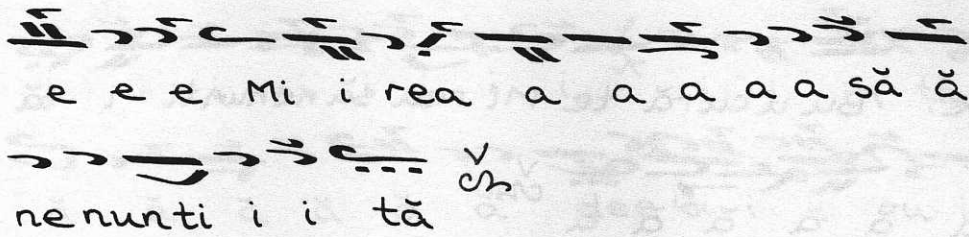 e e e Mi i rea a a a a a să ă
ne nunti i i tă